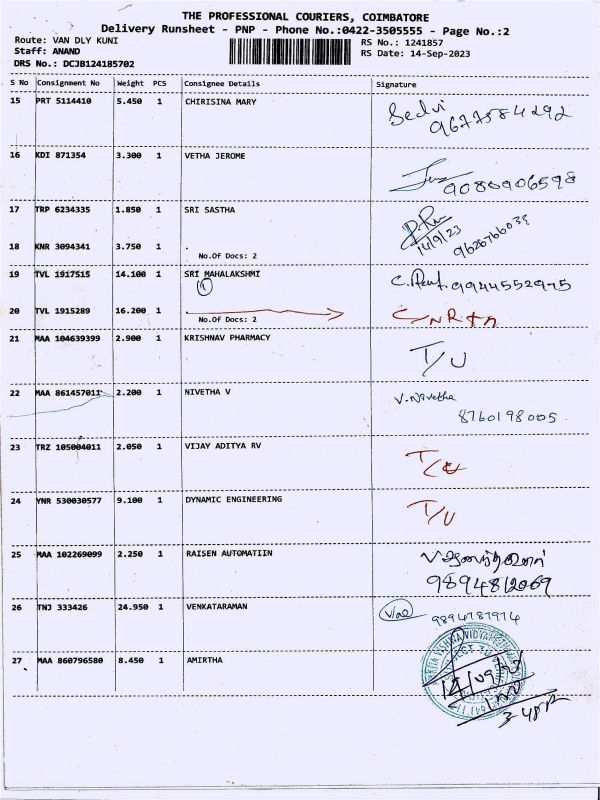 THE PROFESSIONAL COURIERS, COIMBATORE
Delivery Runsheet - PNP - Phone No.:0422-3505555 - Page No.:2
Route: VAN DLY KUNI
RS No.: 1241857
Staff: ANAND
RS Date: 14-Sep-2023
DRS No.: DCJB124185702
S No Consignment No Weight PCS Consignee Details Signature
15 PRT 5114410 5.450 1 CHIRISINA MARY Selvi
9677584292
16 KDI 871354 3.300 1 VETHA JEROME
9080906598
17 TRP 6234335 1.850 1 SRI SASTHA
14/9/23
18 KNR 3094341 3.750 1 .
No.Of Docs: 2
19 TVL 1917515 14.100 1 SRI MAHALAKSHMI 9944552975
1
20 TVL 1915289 16.200 1
No.Of Docs: 2
21 MAA 104639399 2.900 1 KRISHNAV PHARMACY T/U
22 MAA 861457011 2.200 1 NIVETHA V V. Nivetha
8760198005
23 TRZ 105004011 2.050 1 VIJAY ADITYA RV
24 YNR 530030577 9.100 1 DYNAMIC ENGINEERING T/U
25 MAA 102269099 2.250 1 RAISEN AUTOMATIIN
9894812069
26 TNJ 333426 24.950 1 VENKATARAMAN
9894787974
27 MAA 860796580 8.450 1 AMIRTHA
14/09/